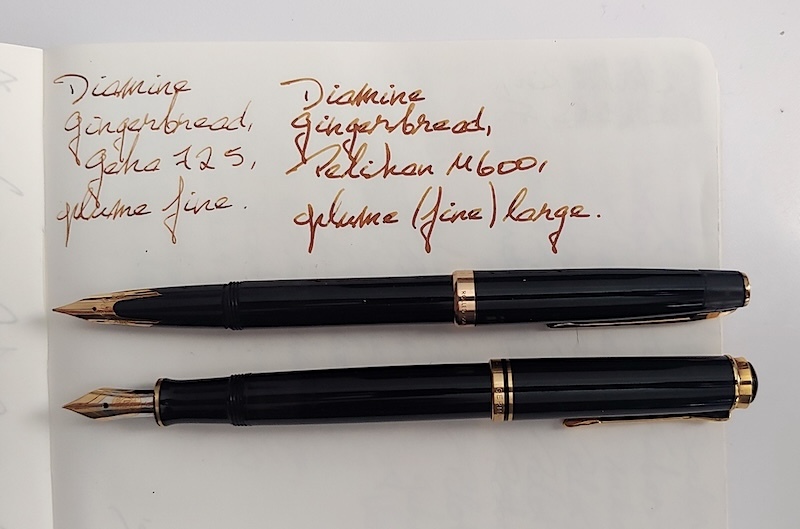 Diamine
gingerbread,
Geha 725,
plume fine.
Diamine
gingerbread,
Pelikan M600,
plume (fine) large.